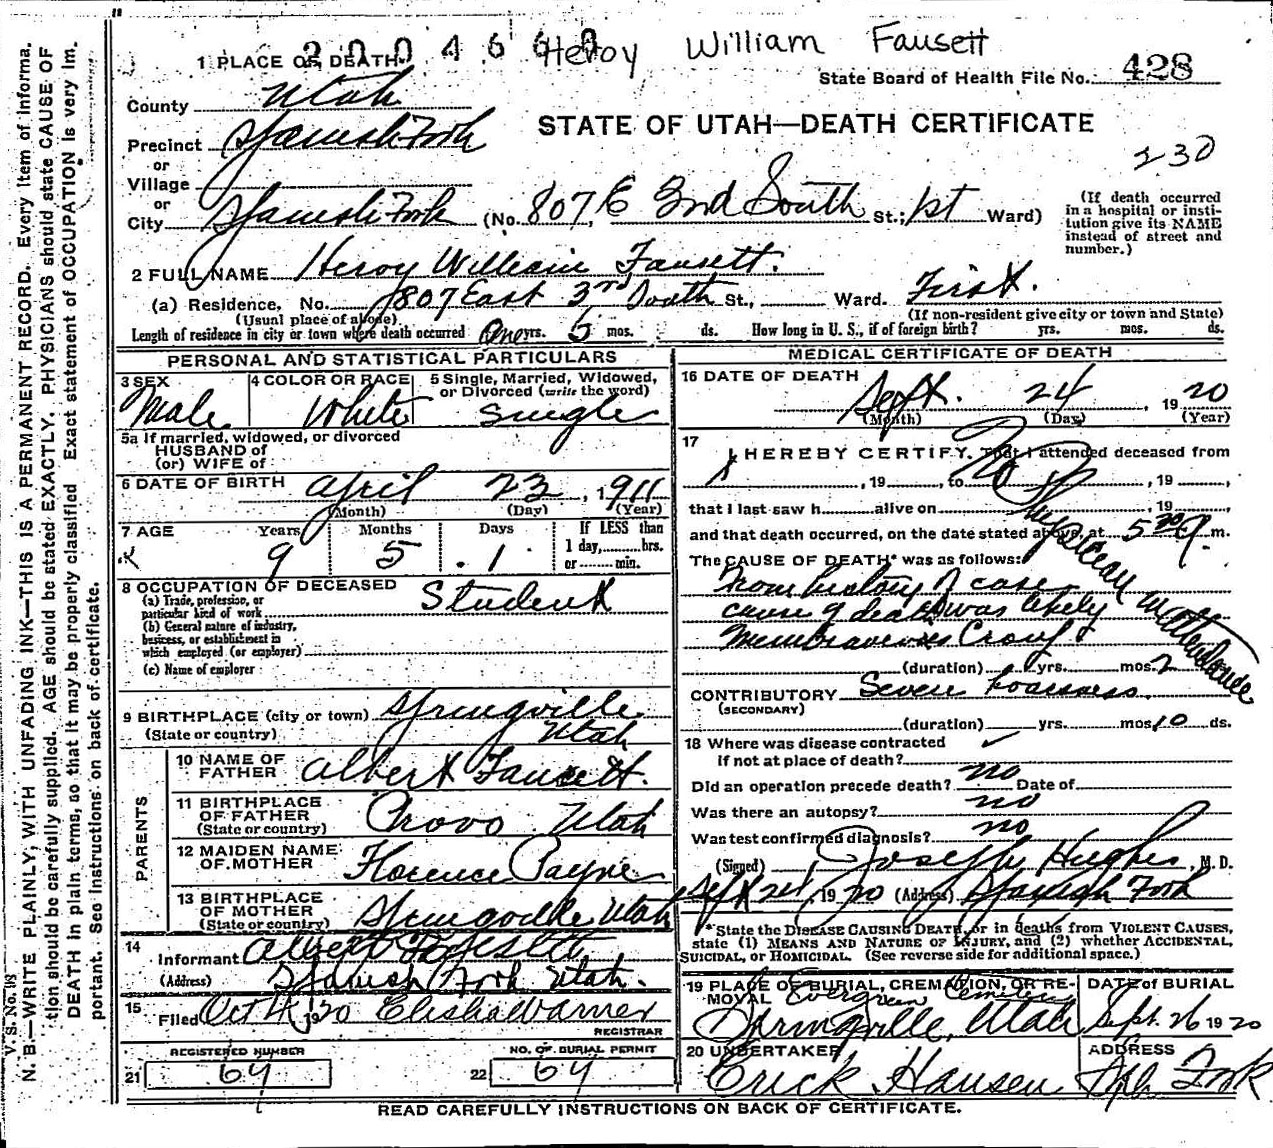 2004660 Heroy William Fausett
1 PLACE OF DEATH
State Board of Health File No. 428
County Utah
STATE OF UTAH—DEATH CERTIFICATE
Precinct Spanish Fork
230
or
Village
or
City Spanish Fork (No. 807 E 3rd South St.; 1st Ward)
(If death occurred
in a hospital or insti-
tution give its NAME
instead of street and
number.)
2 FULL NAME Heroy William Fausett.
(a) Residence, No. 807 East 3rd South St., Ward. First.
(Usual place of abode) (If non-resident give city or town and State)
Length of residence in city or town where death occurred One yrs. 5 mos. ds. How long in U. S., if of foreign birth? yrs. mos. ds.
PERSONAL AND STATISTICAL PARTICULARS
3 SEX 4 COLOR OR RACE 5 Single, Married, Widowed,
or Divorced (write the word)
Male White Single
5a If married, widowed, or divorced
HUSBAND of
(or) WIFE of
6 DATE OF BIRTH April 23, 1911
(Month) (Day) (Year)
7 AGE Years Months Days If LESS than
1 day, hrs.
or min.
9 5 1
8 OCCUPATION OF DECEASED Student
(a) Trade, profession, or
particular kind of work
(b) General nature of industry,
business, or establishment in
which employed (or employer)
(c) Name of employer
9 BIRTHPLACE (city or town) Springville
(State or country) Utah
PARENTS
10 NAME OF
FATHER Albert Fausett.
11 BIRTHPLACE
OF FATHER Provo Utah
(State or country)
12 MAIDEN NAME
OF MOTHER Florence Payne
13 BIRTHPLACE
OF MOTHER Springville Utah
(State or country)
14
Informant Albert Fausett
(Address) Spanish Fork Utah.
15
Filed Oct 4, 1920 Elisha Warner
REGISTRAR
REGISTERED NUMBER NO. OF BURIAL PERMIT
21 64 22 64
MEDICAL CERTIFICATE OF DEATH
16 DATE OF DEATH
Sept. 24, 1920
(Month) (Day) (Year)
17
I HEREBY CERTIFY, That I attended deceased from
, 19 , to , 19 ,
No Physician in attendance
that I last saw h alive on , 19 ,
and that death occurred, on the date stated above, at 5 30 P. m.
The CAUSE OF DEATH* was as follows:
From history of case
cause of death was likely
Membraneous Croup
(duration) yrs. mos. 2
CONTRIBUTORY Severe hoarsness.
(SECONDARY)
(duration) yrs. mos. 10 ds.
18 Where was disease contracted
If not at place of death?
Did an operation precede death? no Date of
Was there an autopsy? no
Was test confirmed diagnosis? no
(Signed) Joseph Hughes, M. D.
Sept 24, 1920 (Address) Spanish Fork
*State the DISEASE CAUSING DEATH, or in deaths from VIOLENT CAUSES,
state (1) MEANS AND NATURE OF INJURY, and (2) whether ACCIDENTAL,
SUICIDAL, or HOMICIDAL. (See reverse side for additional space.)
19 PLACE OF BURIAL, CREMATION, OR RE- DATE of BURIAL
MOVAL Evergreen Cemetery
Springville, Utah Sept. 26 1920
20 UNDERTAKER ADDRESS
Erick Hansen Sph Fork
READ CAREFULLY INSTRUCTIONS ON BACK OF CERTIFICATE.
V. S. No. 98
N. B.—WRITE PLAINLY, WITH UNFADING INK—THIS IS A PERMANENT RECORD. Every item of informa-
tion should be carefully supplied. AGE should be stated EXACTLY. PHYSICIANS should state CAUSE OF
DEATH in plain terms, so that it may be properly classified. Exact statement of OCCUPATION is very im-
portant. See instructions on back of certificate.